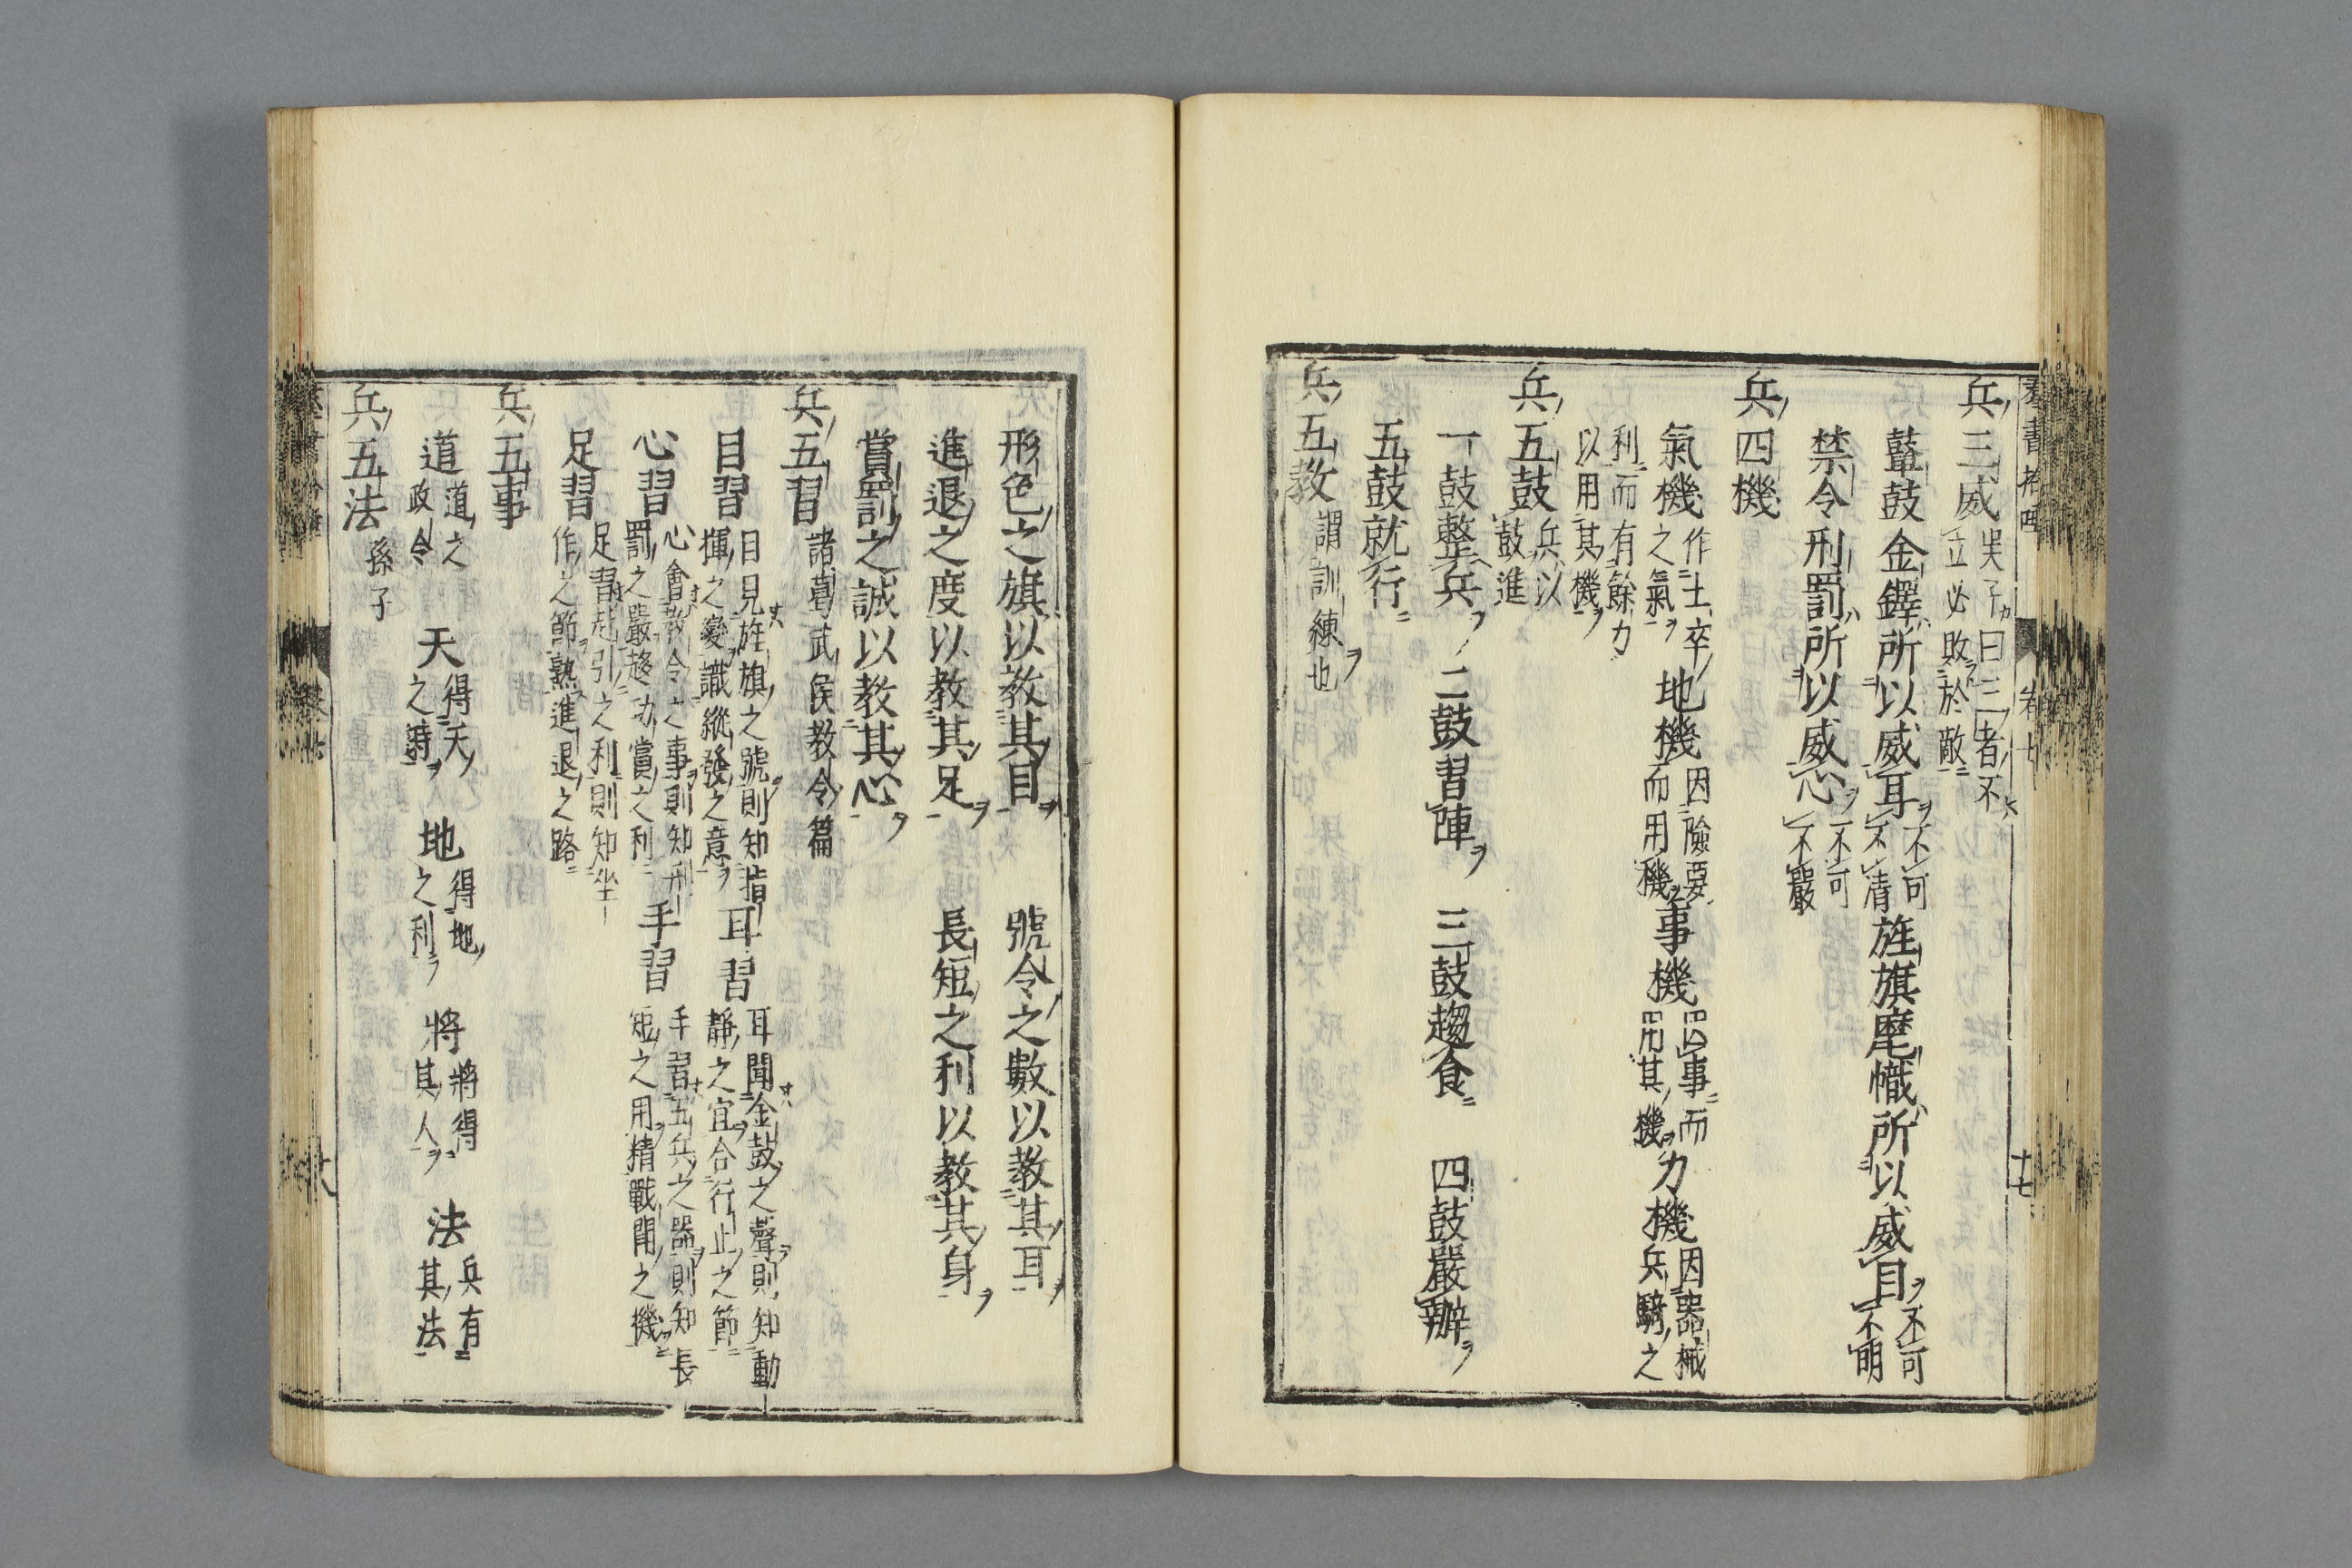 兵三威 吴子曰三者不
立必敗於敵
鼙鼓金鐸所以威耳 不可
不清 旌旗麾幟所以威目 不可
不明
禁令刑罰所以威心 不可
不嚴
兵四機
氣機 作士卒
之氣 地機 因險要
而用機 事機 因事而
用其機 力機 因器械
兵騎之
利而有餘力
以用其機
兵五鼓 兵以
鼓進
一鼓整兵 二鼓習陣 三鼓趨食 四鼓嚴辦
五鼓就行
兵五教 謂訓練也
形色之旗以教其目 號令之數以教其耳
進退之度以教其足 長短之利以教其身
賞罰之誠以教其心
兵五習 諸葛武侯教令篇
目習 目見旌旗之號則知指
揮之變識縱發之意 耳習 耳聞金鼓之聲則知動
靜之宜合行止之節
心習 心會教令之事則知刑
罰之嚴趨功賞之利 手習 手習五兵之器則知長
短之用精戰鬪之機
足習 足習起引之利則知坐
作之節熟進退之路
兵五事
道 道之
政令 天 得天
之時 地 得地
之利 將 將得
其人 法 兵有
其法
兵五法 孫子